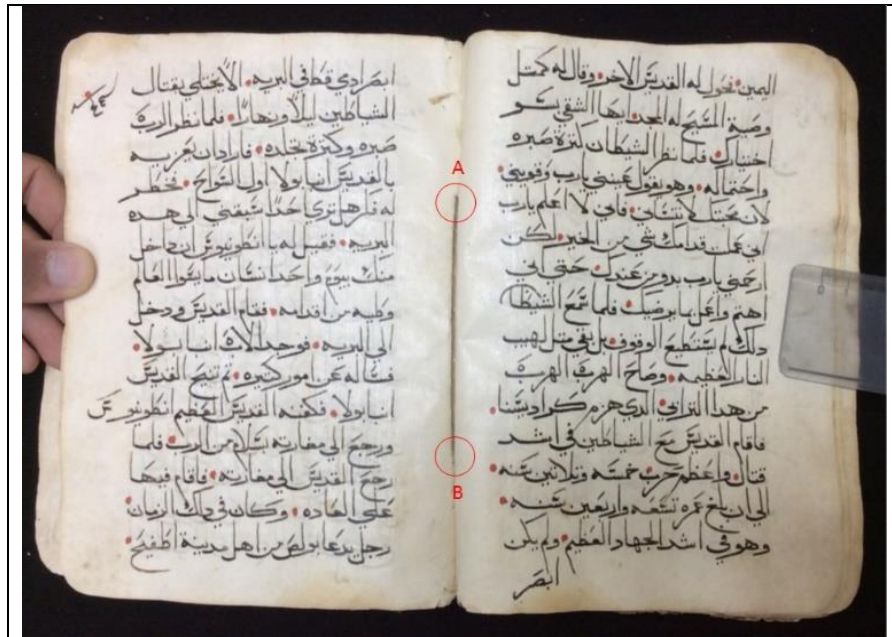 اليمين• تحول له القديس الاخر• وقال له كمتل
وصية المسيح له المجد• ايها الشقي سو
اختيارك• فلما نظر الشيطان كترة صبره
واحتماله• وهو يقول عينني يارب وقويني•
لان محبتك لا تنساني• فاني لا اعلم يارب
اني عملت قدامك شي من الخير• لكن
ارحمني يارب بدو من عندك• حتي اني
اهتم واعمل ما يرضيك• فلما سمع الشيطا
دلك لم يستطيع الوقوف• بل بقي متل لهيب
النار العظيمه• وصاح الهرب الهرب
من هدا الدي هزم كراديسنا•
فاقام القديس مع الشياطين في اشد
قتال• واعظم حرب خمسه وتلاتين سنه•
الي ان بلغ عمره تسعه واربعين سنه•
وهو في اشد الجهاد العظيم• ولم يكن
ابصر
ابصر ادي قط في البريه• الا يختلي بقتال
الشياطين ليلا ونهارا• فلما نظر الرب
صبره وكترة تجلده• فاراد ان يعزيه
بالقديس انبا بولا اول السواح• فخطر
له قل هل تري احدا سبقني الي هده
البريه• فقيل له يا انطونيوس ان داخل
منك بيوم واحد انسان ما يسوا العالم
وطيه من اقدامه• فقام القديس ودخل
الي البريه• فوجد الاب انبا بولا•
فساله عن امور كتيره• تم تنيح القديس
انبا بولا• فكفنه القديس العظيم انطونيوس
ورجع الي مغارته بسلام من الرب• فلما
رجع القديس الي مغارته• فاقام فيها
علي العاده• وكان في دلك الزمان
رجل يدعا بولص من اهل مدينة اطفيح•
A
B